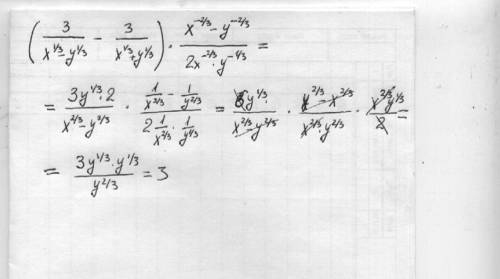 (3/(x^1/3 - y^1/3) - 3/(x^1/3 + y^1/3)) · (x^-2/3 - y^-2/3)/(2x^-2/3 · y^-1/3) =
= (3y^1/3 · 2)/(x^2/3 - y^2/3) · (1/x^2/3 - 1/y^2/3)/(2 1/x^2/3 · 1/y^1/3) = (6y^1/3)/(x^2/3 - y^2/3) · (y^2/3 - x^2/3)/(x^2/3 · y^2/3) · (x^2/3 y^1/3)/2 =
= (3y^1/3 · y^1/3)/y^2/3 = 3